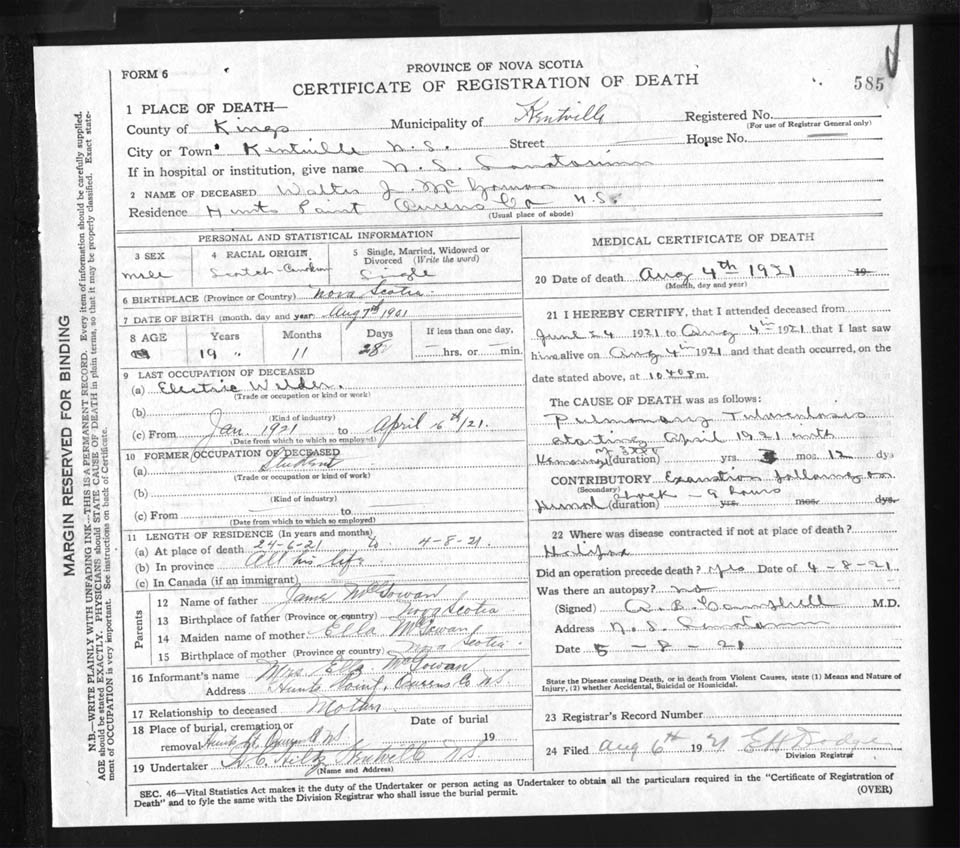 FORM 6
PROVINCE OF NOVA SCOTIA
CERTIFICATE OF REGISTRATION OF DEATH
585
1 PLACE OF DEATH—
County of Kings Municipality of Kentville Registered No.
(For use of Registrar General only)
City or Town Kentville N.S. Street House No.
If in hospital or institution, give name N. S. Sanatorium
2 NAME OF DECEASED Walter J. McGowan
Residence Hunts Point Queens Co N.S.
(Usual place of abode)
PERSONAL AND STATISTICAL INFORMATION
3 SEX
Male
4 RACIAL ORIGIN
Scotch-Canadian
5 Single, Married, Widowed or
Divorced (Write the word)
Single
6 BIRTHPLACE (Province or Country) Nova Scotia
7 DATE OF BIRTH (month, day and year) Aug 7th 1901
8 AGE
Years
19
Months
11
Days
28
If less than one day,
hrs. or min.
9 LAST OCCUPATION OF DECEASED
(a) Electric Welder.
(Trade or occupation or kind or work)
(b)
(Kind of industry)
(c) From Jan. 1921 to April 6th/21.
(Date from which to which so employed)
10 FORMER OCCUPATION OF DECEASED
(a) Student
(Trade or occupation or kind of work)
(b)
(Kind of industry)
(c) From to
(Date from which to which so employed)
11 LENGTH OF RESIDENCE (In years and months)
(a) At place of death 24-6-21 to 4-8-21.
(b) In province All his life
(c) In Canada (if an immigrant)
Parents
12 Name of father James McGowan
13 Birthplace of father (Province or country) Nova Scotia
14 Maiden name of mother Ella McGowan
15 Birthplace of mother (Province or country) Nova Scotia
16 Informant's name Mrs Ella McGowan
Address Hunts Point, Queens Co N.S.
17 Relationship to deceased Mother
18 Place of burial, cremation or Date of burial
removal Hunts Pt. N.S. 19
19 Undertaker Kentville N.S.
(Name and Address)
MEDICAL CERTIFICATE OF DEATH
20 Date of death Aug 4th 1921 19
(Month, day and year)
21 I HEREBY CERTIFY, that I attended deceased from
June 24 1921 to Aug 4th 1921 that I last saw
him alive on Aug 4th 1921 and that death occurred, on the
date stated above, at 10 40 P m.
The CAUSE OF DEATH was as follows:
Pulmonary Tuberculosis
starting April 1921 with
(duration) yrs. 3 mos. 12 dys
CONTRIBUTORY Exhaustion following on
(Secondary)
shock - 9 hours
(duration) yrs. mos. dys.
22 Where was disease contracted if not at place of death?
Halifax
Did an operation precede death? Yes Date of 4-8-21
Was there an autopsy? no
(Signed) A. B. Campbell M.D.
Address N. S. Sanatorium
Date 5-8-21
State the Disease causing Death, or in death from Violent Causes, state (1) Means and Nature of
Injury, (2) whether Accidental, Suicidal or Homicidal.
23 Registrar's Record Number
24 Filed Aug 6th 1921 E H Dodge
Division Registrar
SEC. 46—Vital Statistics Act makes it the duty of the Undertaker or person acting as Undertaker to obtain all the particulars required in the "Certificate of Registration of
Death" and to fyle the same with the Division Registrar who shall issue the burial permit.
(OVER)
MARGIN RESERVED FOR BINDING
N.B.—WRITE PLAINLY WITH UNFADING INK—THIS IS A PERMANENT RECORD. Every item of information should be carefully supplied.
AGE should be stated EXACTLY. PHYSICIANS should STATE CAUSE OF DEATH in plain terms, so that it may be properly classified. Exact state-
ment of OCCUPATION is very important. See instructions on back of Certificate.